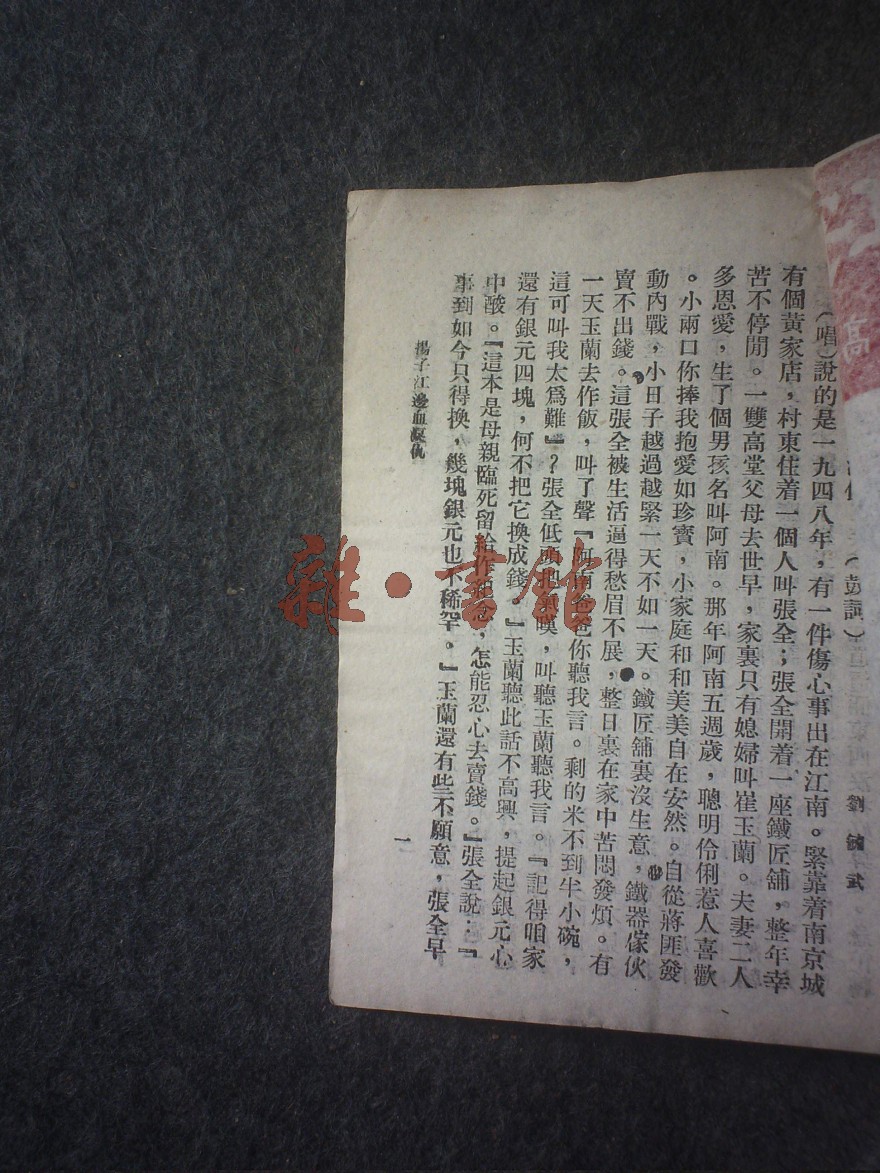 （鼓詞）
劉 武
（唱）說的是一九四八年，有一件傷心事出在江南。緊靠着南京城
有個黃家店，村東住着一個人叫張全；張全開着一座鐵匠舖，整年辛
苦不停閒。一雙高堂父母去世早，家裏只有媳婦叫崔玉蘭。夫妻二人
多恩愛，生了個男孩名叫阿南。那年阿南五週歲，聰明伶俐惹人喜歡
。小兩口你捧我抱愛如珍寶，小家庭和和美美自在安然。自從蔣匪發
動內戰，小日子越過越緊一天不如一天。鐵匠舖裏沒生意，鐵器傢伙
賣不出錢。這張全被生活逼得愁眉不展，整日裏在家中苦悶發煩。有
一天玉蘭去作飯，叫了聲『阿南爸爸你聽我言。剩的米不到半小碗，
這可叫我太爲難』？張全低頭把氣嘆，叫聽玉蘭聽我言。『記得咱家
還有銀元四塊，何不把它換成錢。』玉蘭聽此話不高興，提起銀元心
中酸。『這本是母親臨死留給作紀念，怎能忍心去賣錢。』張全說：『
事到如今只得換，幾塊銀元也不稀罕。』玉蘭還有些不願意，張全早
揚子江邊血凝仇
一
高
雜·書館